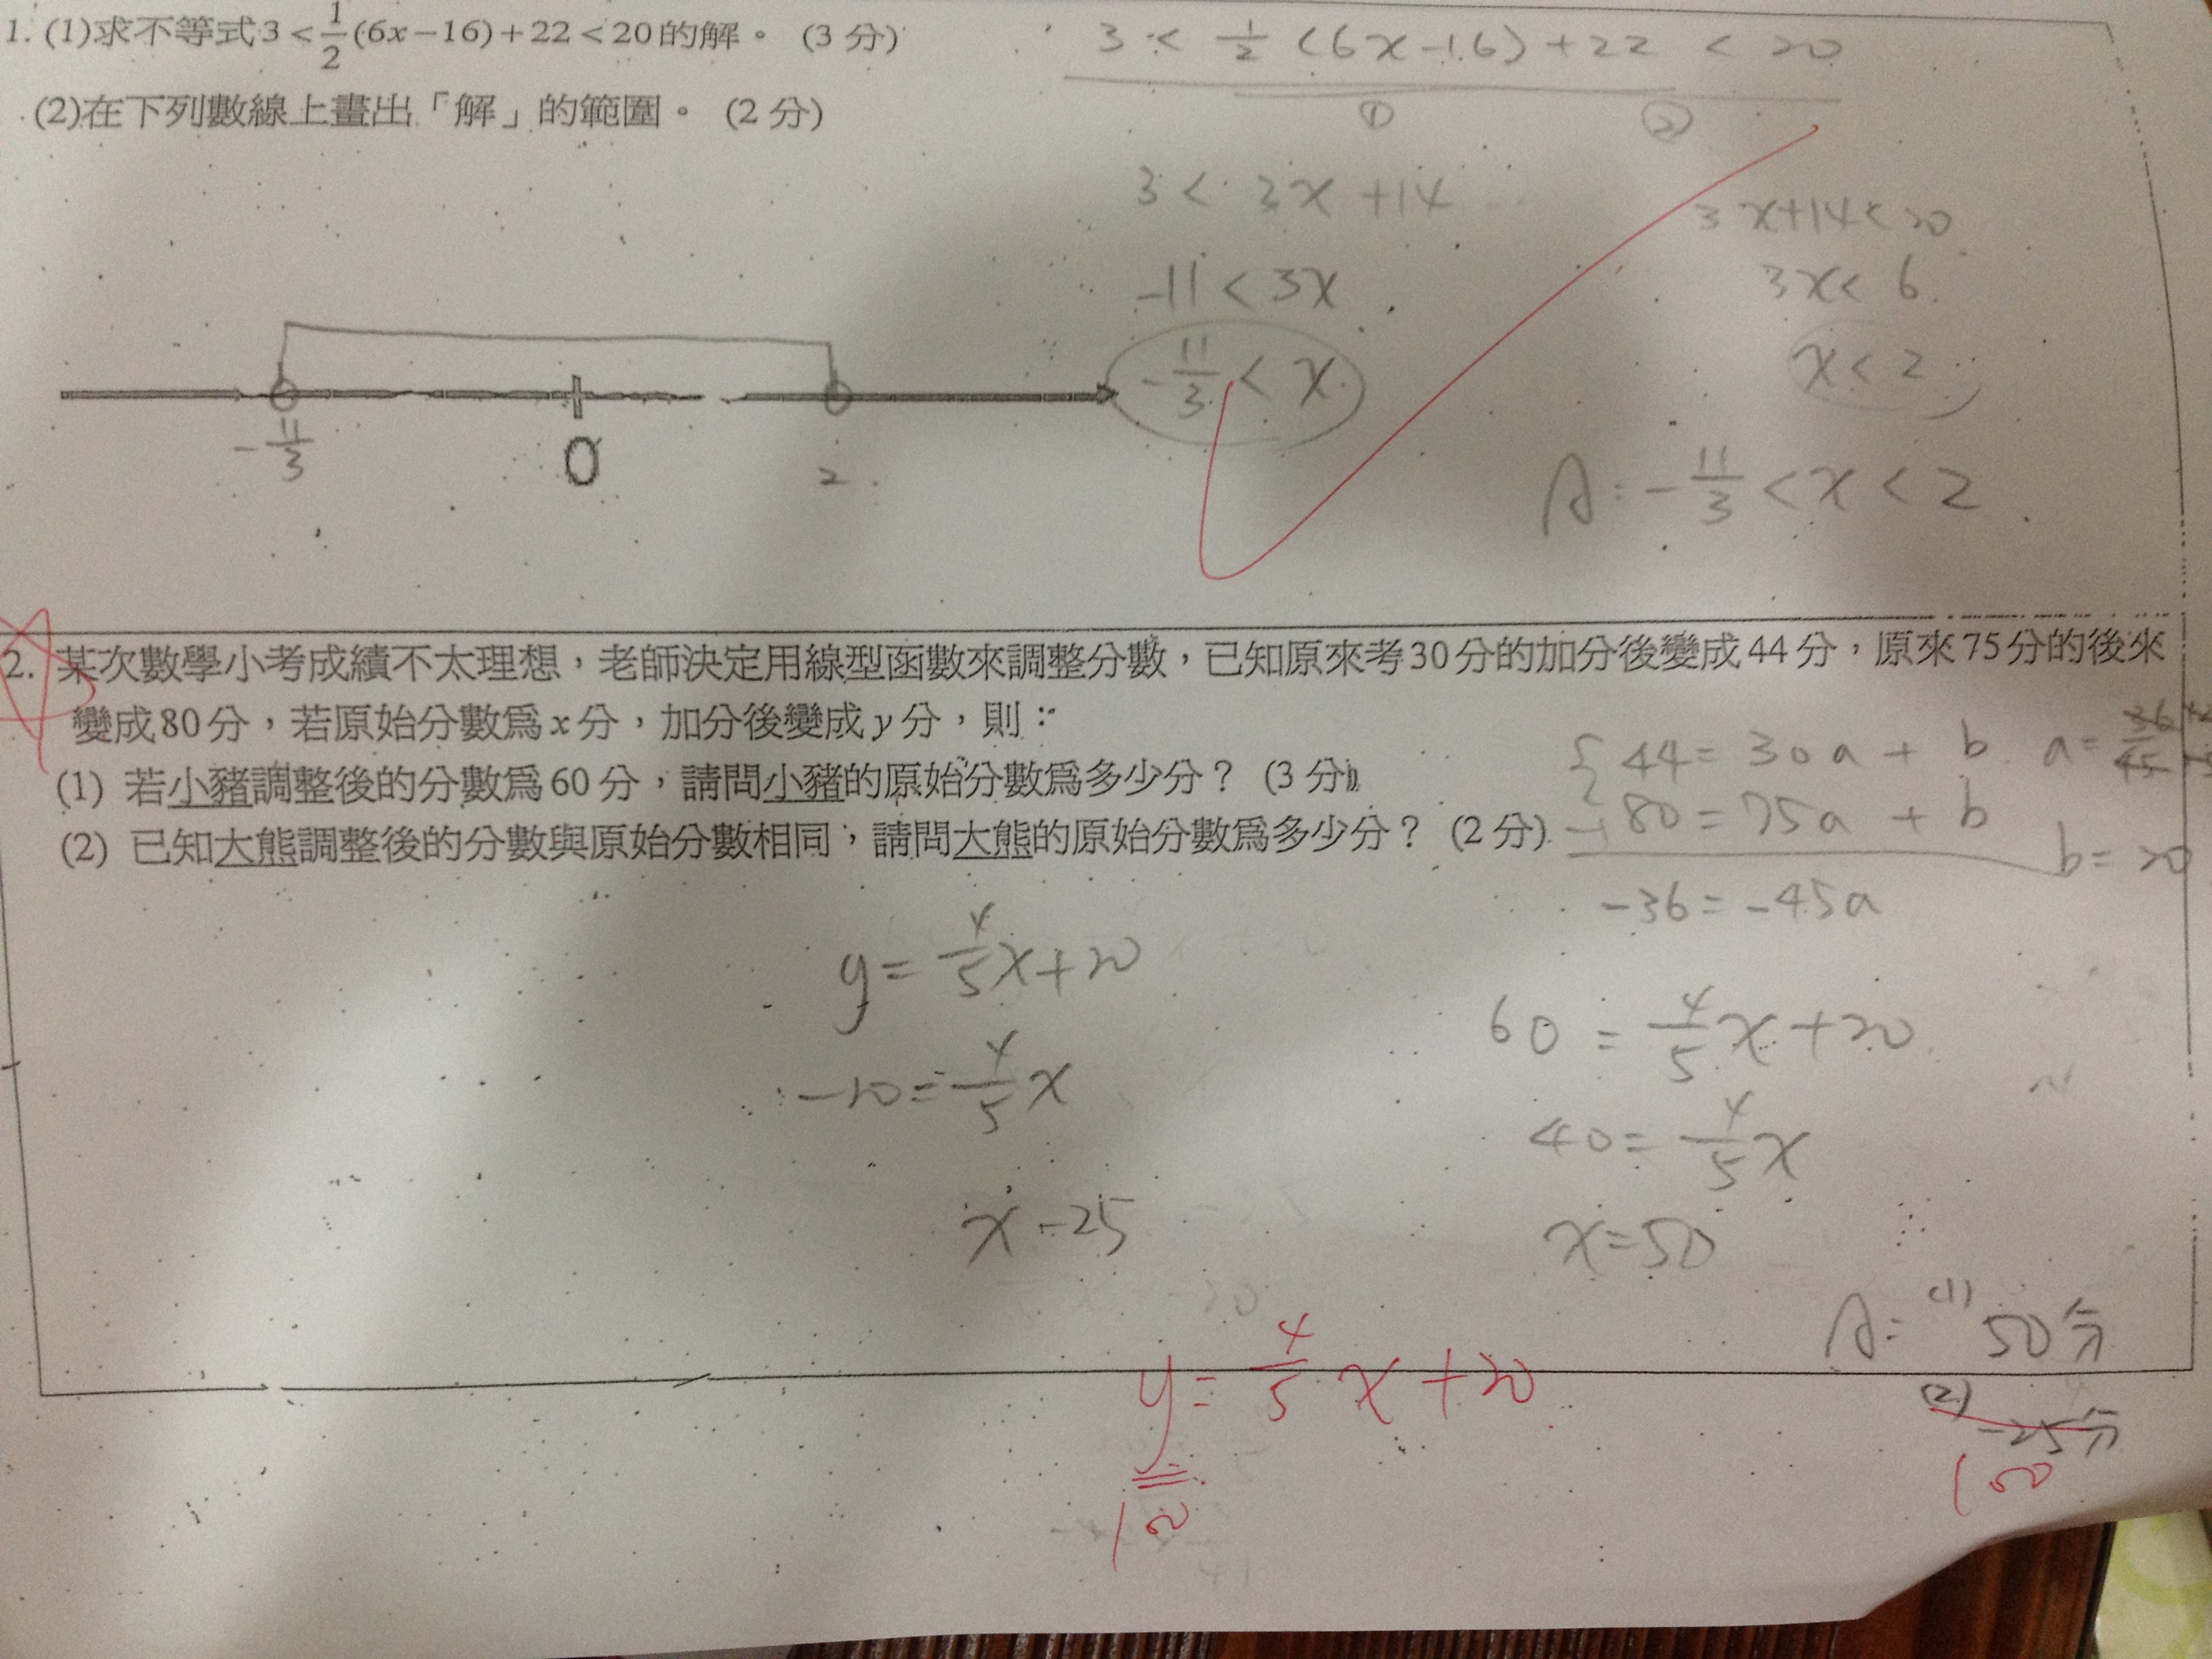 1. (1)求不等式3<1/2(6x-16)+22<20的解。(3分)
(2)在下列數線上畫出「解」的範圍。(2分)
3 < 1/2 (6x-16) + 22 < 20
① ②
3 < 3x + 14
-11 < 3x
-11/3 < x
3x+14<20
3x< 6
x < 2
A: -11/3 < x < 2
-11/3 0 2
2. 某次數學小考成績不太理想,老師決定用線型函數來調整分數,已知原來考30分的加分後變成44分,原來75分的後來
變成80分,若原始分數為x分,加分後變成y分,則:
(1) 若小豬調整後的分數為60分,請問小豬的原始分數為多少分?(3分)
(2) 已知大熊調整後的分數與原始分數相同,請問大熊的原始分數為多少分?(2分)
{ 44 = 30a + b
-) 80 = 75a + b
-36 = -45a
a = 36/45
b = 20
y = 4/5 x + 20
-20 = 4/5 x
x -25
60 = 4/5 x + 20
40 = 4/5 x
x = 50
A: (1) 50分
(2) -25分
100
y = 4/5 x + 20
100